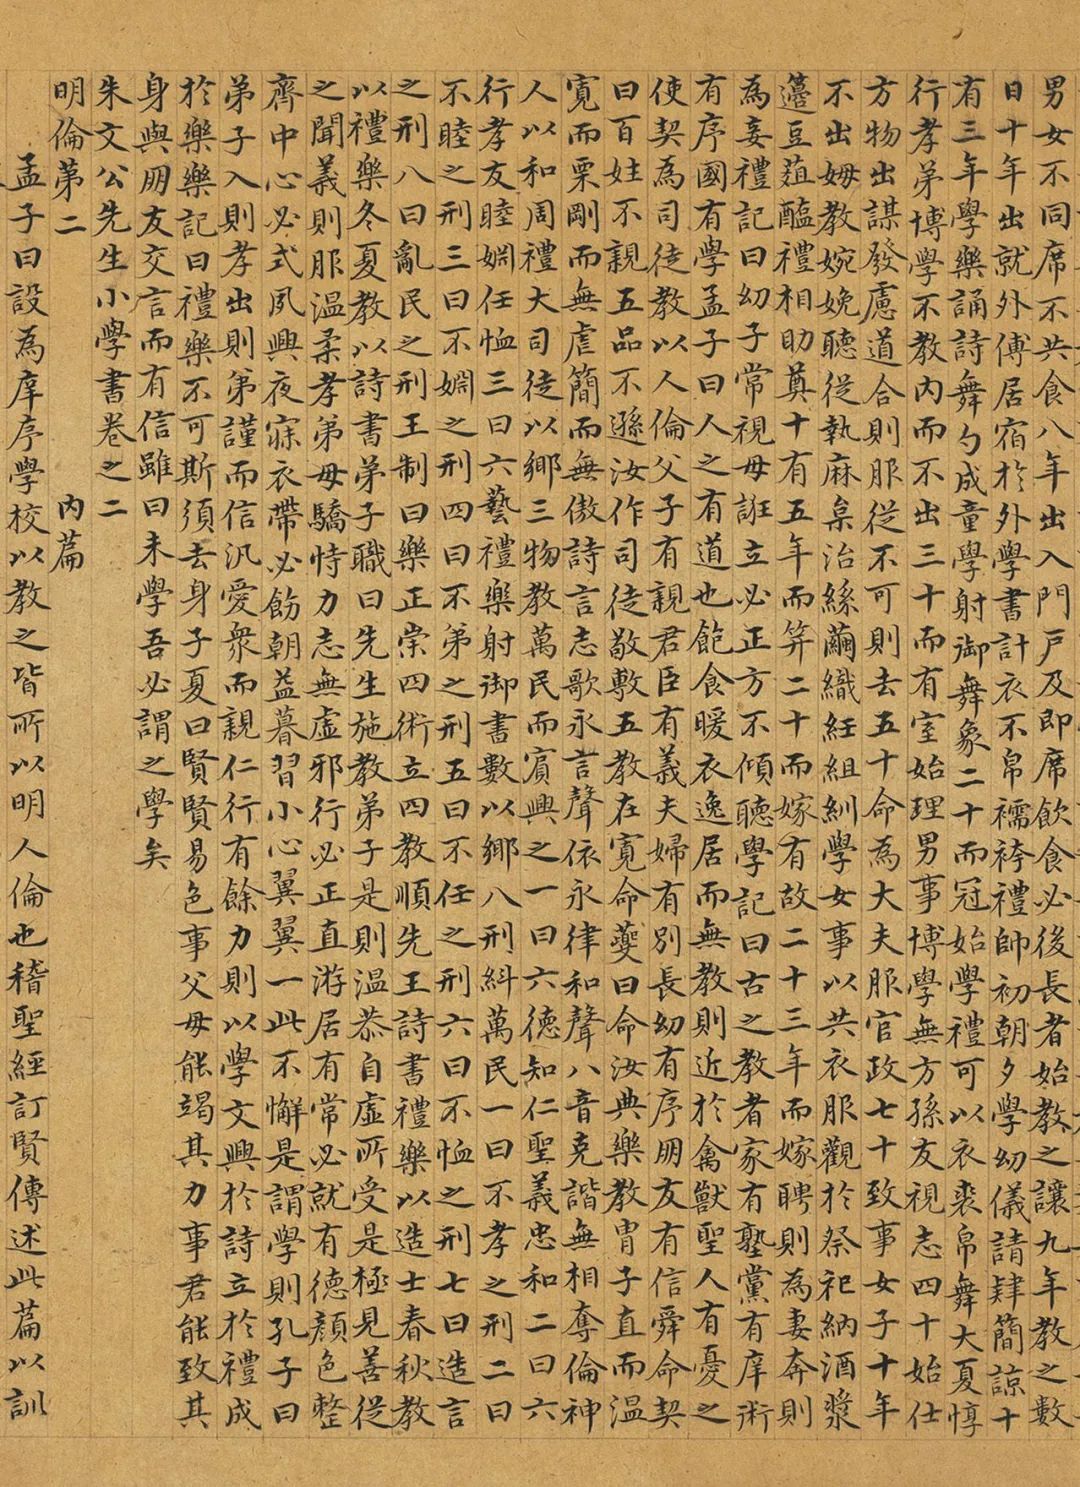 男女不同席不共食八年出入門戶及即席飲食必後長者始教之讓九年教之數
日十年出就外傅居宿於外學書計衣不帛襦袴禮帥初朝夕學幼儀請肄簡諒十
有三年學樂誦詩舞勺成童學射御舞象二十而冠始學禮可以衣裘帛舞大夏惇
行孝弟博學不教內而不出三十而有室始理男事博學無方孫友視志四十始仕
方物出謀發慮道合則服從不可則去五十命為大夫服官政七十致事女子十年
不出姆教婉娩聽從執麻枲治絲繭織紝組紃學女事以共衣服觀於祭祀納酒漿
籩豆菹醢禮相助奠十有五年而笄二十而嫁有故二十三年而嫁聘則為妻奔則
為妾禮記曰幼子常視毋誑立必正方不傾聽學記曰古之教者家有塾黨有庠術
有序國有學孟子曰人之有道也飽食暖衣逸居而無教則近於禽獸聖人有憂之
使契為司徒教以人倫父子有親君臣有義夫婦有別長幼有序朋友有信舜命契
曰百姓不親五品不遜汝作司徒敬敷五教在寬命夔曰命汝典樂教冑子直而溫
寬而栗剛而無虐簡而無傲詩言志歌永言聲依永律和聲八音克諧無相奪倫神
人以和周禮大司徒以鄉三物教萬民而賓興之一曰六德知仁聖義忠和二曰六
行孝友睦婣任恤三曰六藝禮樂射御書數以鄉八刑糾萬民一曰不孝之刑二曰
不睦之刑三曰不婣之刑四曰不弟之刑五曰不任之刑六曰不恤之刑七曰造言
之刑八曰亂民之刑王制曰樂正崇四術立四教順先王詩書禮樂以造士春秋教
以禮樂冬夏教以詩書弟子職曰先生施教弟子是則溫恭自虛所受是極見善從
之聞義則服溫柔孝弟毋驕恃力志無虛邪行必正直游居有常必就有德顏色整
齊中心必式夙興夜寐衣帶必飭朝益暮習小心翼翼一此不懈是謂學則孔子曰
弟子入則孝出則弟謹而信汎愛眾而親仁行有餘力則以學文興於詩立於禮成
於樂樂記曰禮樂不可斯須去身子夏曰賢賢易色事父母能竭其力事君能致其
身與朋友交言而有信雖曰未學吾必謂之學矣
朱文公先生小學書卷之二
明倫第二 內篇
孟子曰設為庠序學校以教之皆所以明人倫也稽聖經訂賢傳述此篇以訓